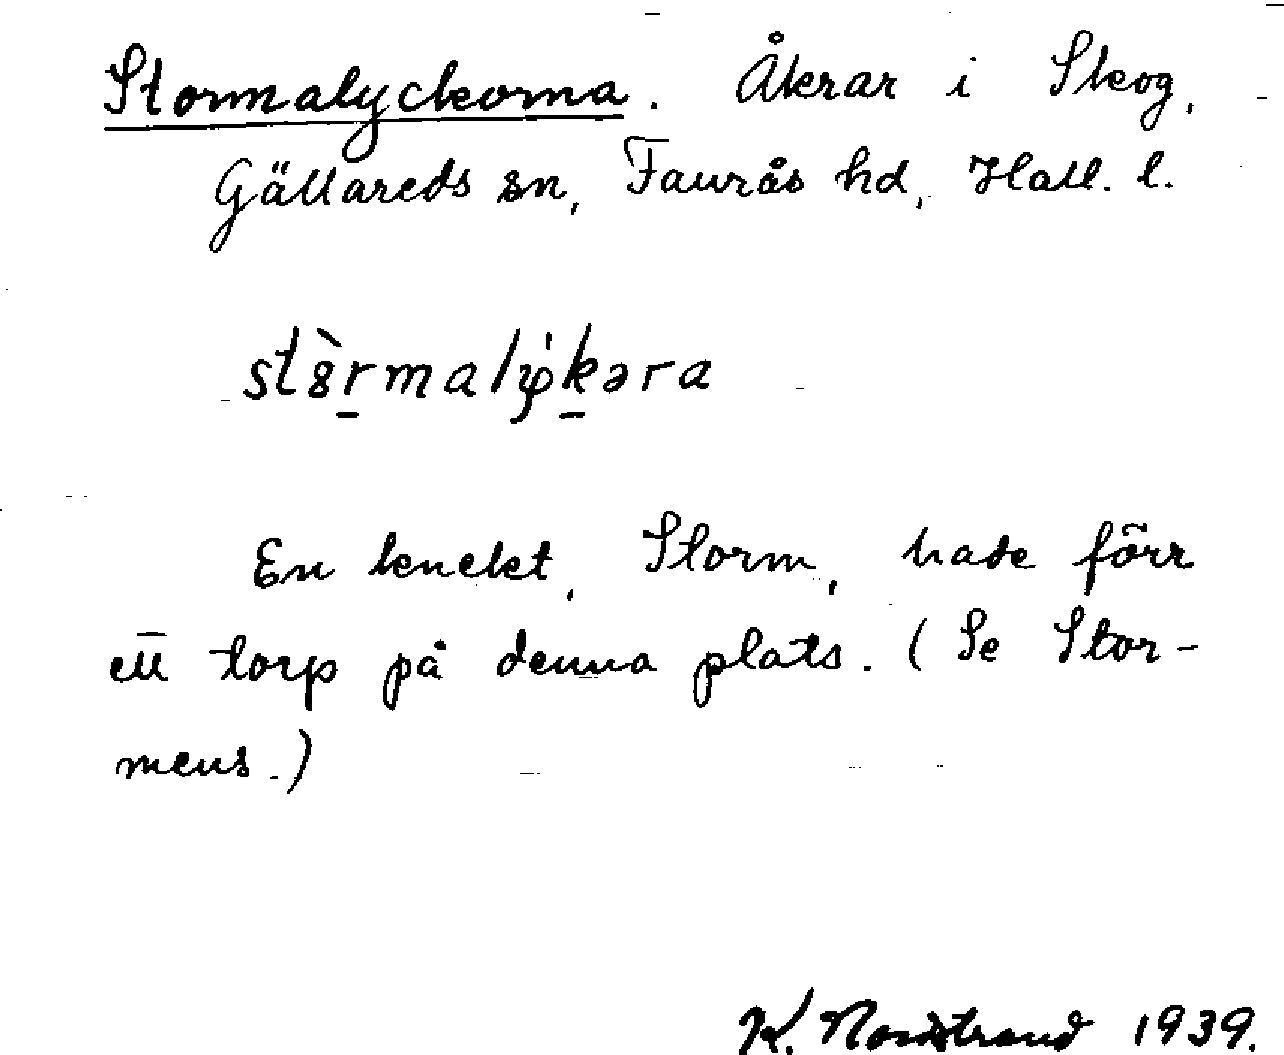 Stormalyckorna. Åkrar i Skog,
Gällareds sn, Faurås hd, Hall. l.
stȣ̀r̠malẏk̠əra
En knekt, Storm, hade förr
ett torp på denna plats. (Se Stor-
mens.)
K. Nordstrand 1939.